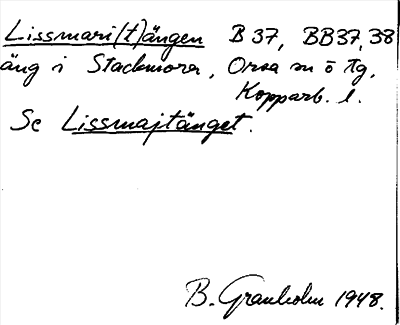 Lissmari(t)ängen B 37, BB37,38
äng i Stackmora, Orsa sn o tg,
Kopparb. l.
Se Lissmajtänget.
B. Granholm 1948.